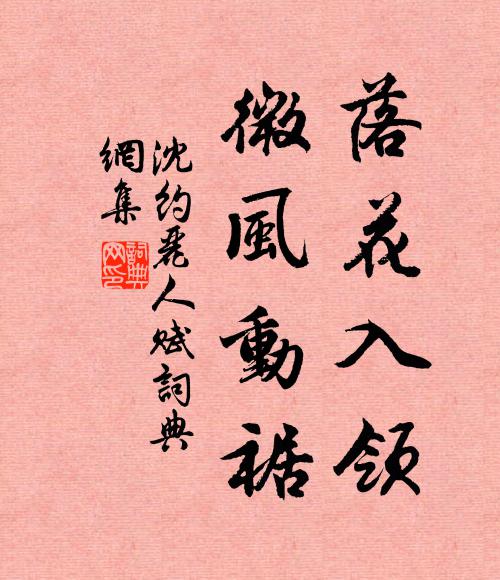 落花入領
微風動裾
沈約麗人賦詞典
網集
詞典
网印